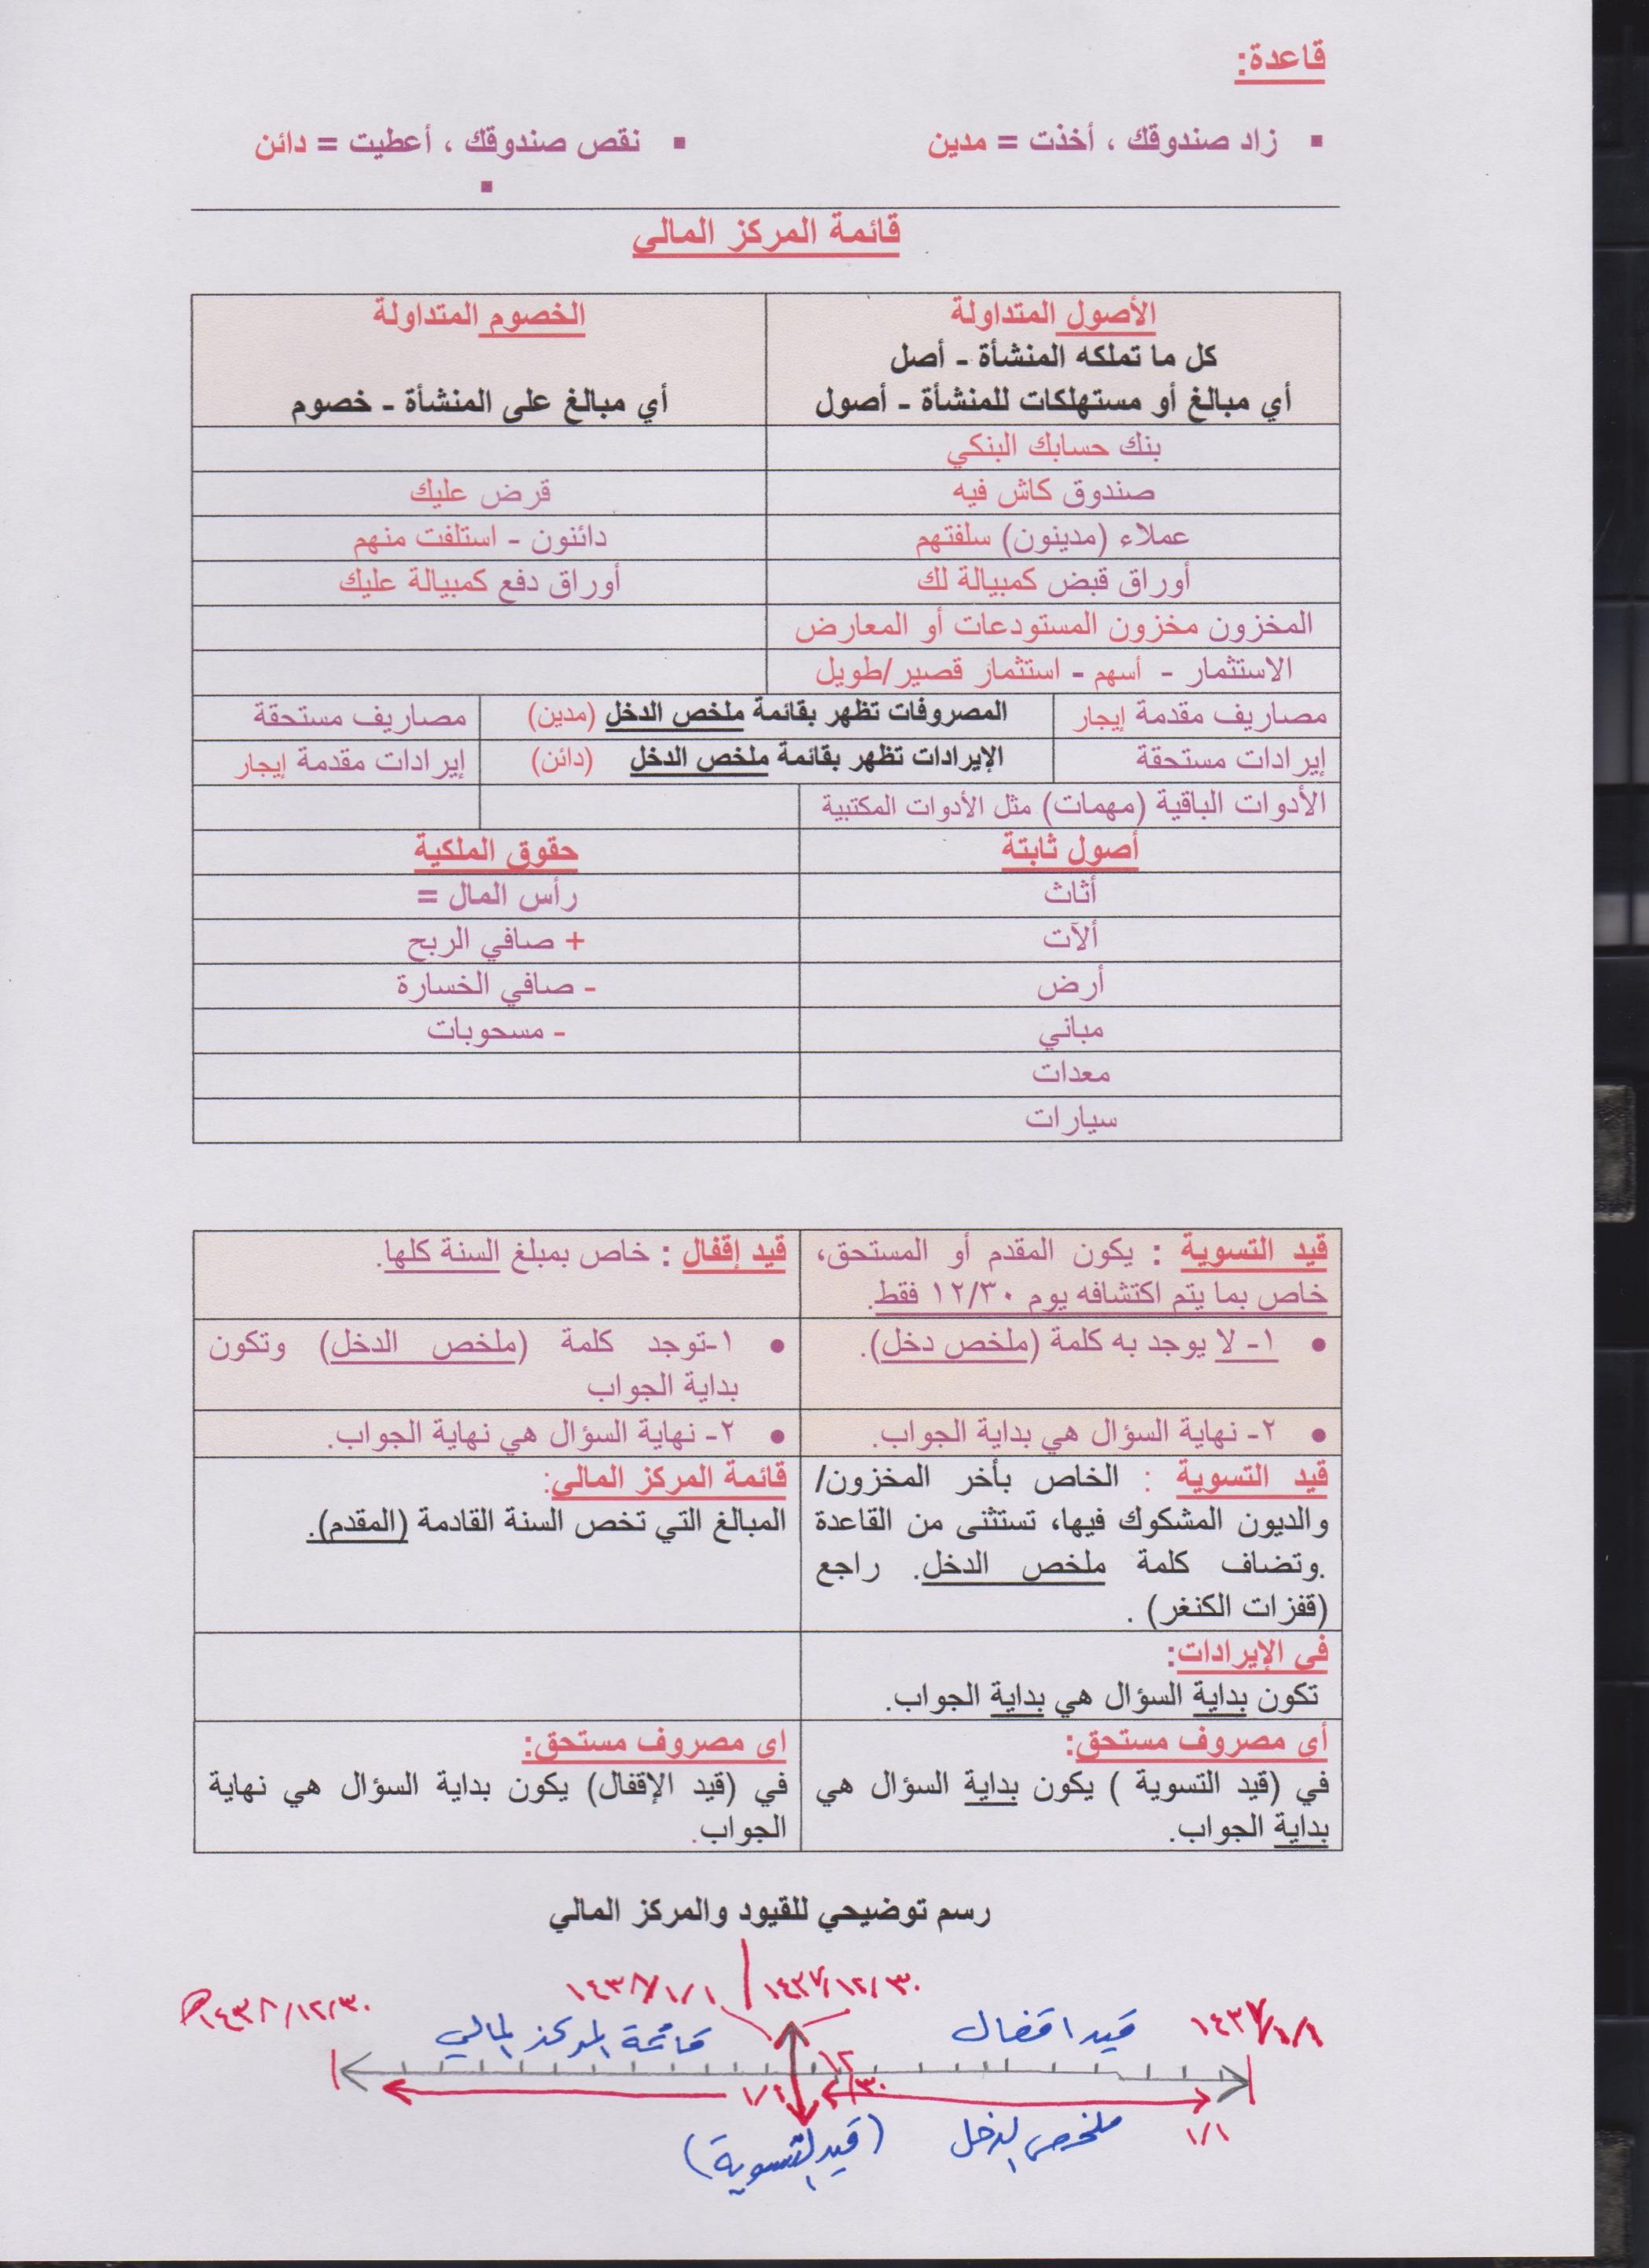 قاعدة:
▪ زاد صندوقك ، أخذت = مدين
▪ نقص صندوقك ، أعطيت = دائن
▪
قائمة المركز المالي
الأصول المتداولة
كل ما تملكه المنشأة - أصل
أي مبالغ أو مستهلكات للمنشأة - أصول
الخصوم المتداولة
أي مبالغ على المنشأة - خصوم
بنك حسابك البنكي
صندوق كاش فيه
قرض عليك
عملاء (مدينون) سلفتهم
دائنون - استلفت منهم
أوراق قبض كمبيالة لك
أوراق دفع كمبيالة عليك
المخزون مخزون المستودعات أو المعارض
الاستثمار - أسهم - استثمار قصير/طويل
مصاريف مقدمة إيجار
المصروفات تظهر بقائمة ملخص الدخل (مدين)
مصاريف مستحقة
إيرادات مستحقة
الإيرادات تظهر بقائمة ملخص الدخل (دائن)
إيرادات مقدمة إيجار
الأدوات الباقية (مهمات) مثل الأدوات المكتبية
أصول ثابتة
حقوق الملكية
أثاث
رأس المال =
ألآت
+ صافي الربح
أرض
- صافي الخسارة
مباني
- مسحوبات
معدات
سيارات
قيد التسوية : يكون المقدم أو المستحق،
خاص بما يتم اكتشافه يوم ١٢/٣٠ فقط.
قيد إقفال : خاص بمبلغ السنة كلها.
• ١- لا يوجد به كلمة (ملخص دخل).
• ١-توجد كلمة (ملخص الدخل) وتكون
بداية الجواب
• ٢- نهاية السؤال هي بداية الجواب.
• ٢- نهاية السؤال هي نهاية الجواب.
قيد التسوية : الخاص بأخر المخزون/
والديون المشكوك فيها، تستثنى من القاعدة
.وتضاف كلمة ملخص الدخل. راجع
(قفزات الكنغر) .
قائمة المركز المالي:
المبالغ التي تخص السنة القادمة (المقدم).
في الإيرادات:
تكون بداية السؤال هي بداية الجواب.
أي مصروف مستحق:
في (قيد التسوية ) يكون بداية السؤال هي
بداية الجواب.
اي مصروف مستحق:
في (قيد الإقفال) يكون بداية السؤال هي نهاية
الجواب.
رسم توضيحي للقيود والمركز المالي
١٤٣٧/١/١
١٤٣٧/١٢/٣٠
١٤٣٨/١/١
١٤٣٨/١٢/٣٠
قيد اقفال
قائمة المركز المالي
١٢/٣٠
١/١
١/١
ملخص الدخل
(قيد التسوية)